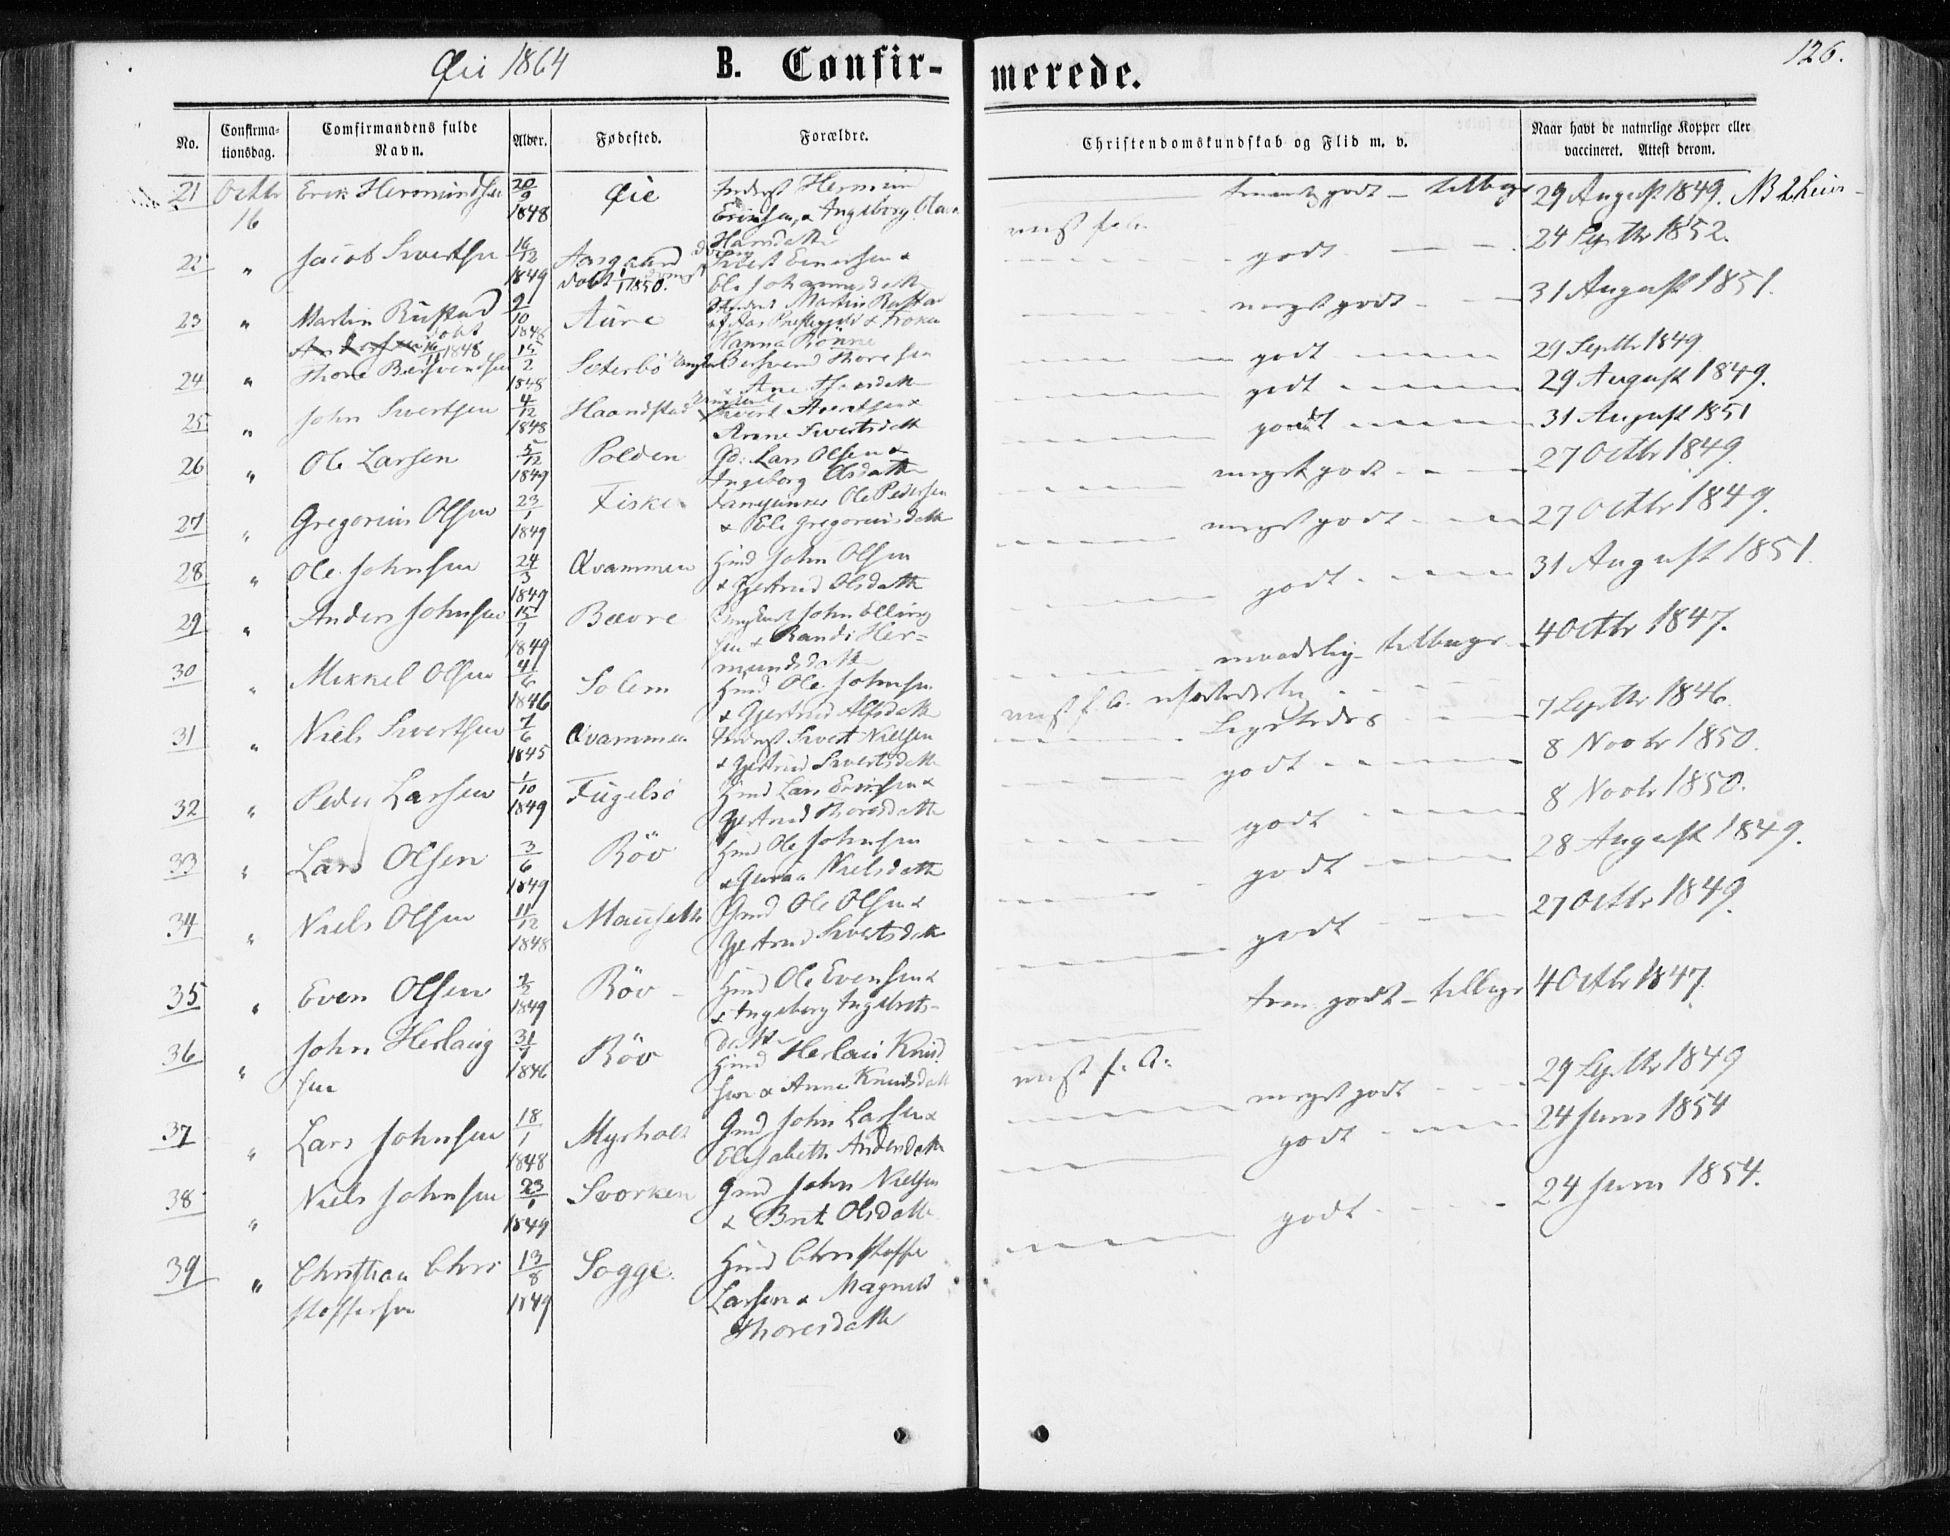 Øie 1864
B. Confir-
merede.
126.
No.
Confirma-
tionsdag.
Comfirmandens fulde
Navn.
Alder.
Fødested.
Forældre.
Christendomskundskab og Flid m. v.
Naar havt de naturlige Kopper eller
vaccineret. Attest derom.
21 Octbr Erik Hermundsen 20/9 Øie
16 1848 Ericsen, & Ingeborg
godt 29 August 1849. NB
22 " Jacob Sivertsen 16/12 Aasgaard
1849 døbt 1/1 1850.
godt 24 Septbr 1852.
23 " Martin Rustad 9/10 Aure Martin Rustad
Andersen døbt 16/11 1848
Hanna Rønne
meget godt 31 August 1851.
24 " Thore Bersvendsen 15/2 Sæterbø Bersvend Thoresen
1848 & Ane
godt 29 Septbr 1849
25 " John Sivertsen 4/12 Haandstad Sivert
1848 Anne Sivertsdatter
godt 29 August 1849.
26 " Ole Larsen 5/12 Polden Gd: Lars Olsen &
1849 Ingeborg Olsdatter
godt 31 August 1851
27 " Gregorius Olsen 23/1 Fiske Ole Pedersen
1849 & Eli Gregoriusdatter
meget godt 27 Octbr 1849.
28 " Ole Johnsen 24/3 Qvammen Hmd John Olsen
1849 & Gjertrud Olsdatter
meget godt 27 Octbr 1849.
29 " Anders Johnsen 15/7 Bævre John Elling
1849 sen & Randi Her-
mundsdatter
godt 31 August 1851.
30 " Mikkel Olsen 4/6 Solem Hmd Ole Johnsen
1846 & Gjertrud Alfsdatter
maadelig 4 Octbr 1847.
31 " Niels Sivertsen 7/6 Qvammen Sivert Nielsen
1845 & Gjertrud Sivertsdatter
7 Septbr 1846.
32 " Peder Larsen 1/10 Fugelsø Hmd Lars Ericksen &
1849 Gjertrud Thoresdatter
godt 8 Novbr 1850.
33 " Lars Olsen 3/6 Røv Hmd Ole Johnsen
1849 & Nielsdatter
godt 8 Novbr 1850.
34 " Niels Olsen 11/12 Mauseth Gmd Ole Olsen &
1848 Gjertrud Sivertsdatter
godt 28 August 1849.
35 " Even Olsen 2/2 Røv Hmd Ole Evensen &
1849 & Ingeborg Ingebrets-
datter
godt 27 Octbr 1849.
36 " John Herlaug 31/1 Røv Hmd Herlaui Knud
sen 1846 sen & Anne Knudsdatter
godt 4 Octbr 1847.
37 " Lars Johnsen 18/1 Myrholt Gmd John Larsen &
1848 Elisabeth Andersdatter
meget godt 29 Septbr 1849
38 " Niels Johnsen 23/1 Svorken Gmd John Nielsen
1849 & Brit Olsdatter
godt 24 Juni 1854
39 " Christian Chri 13/8 Sogge. Hmd Christoffer
stoffersen 1849 Larsen & Magnild
Thoresdatter
godt 24 Juni 1854.